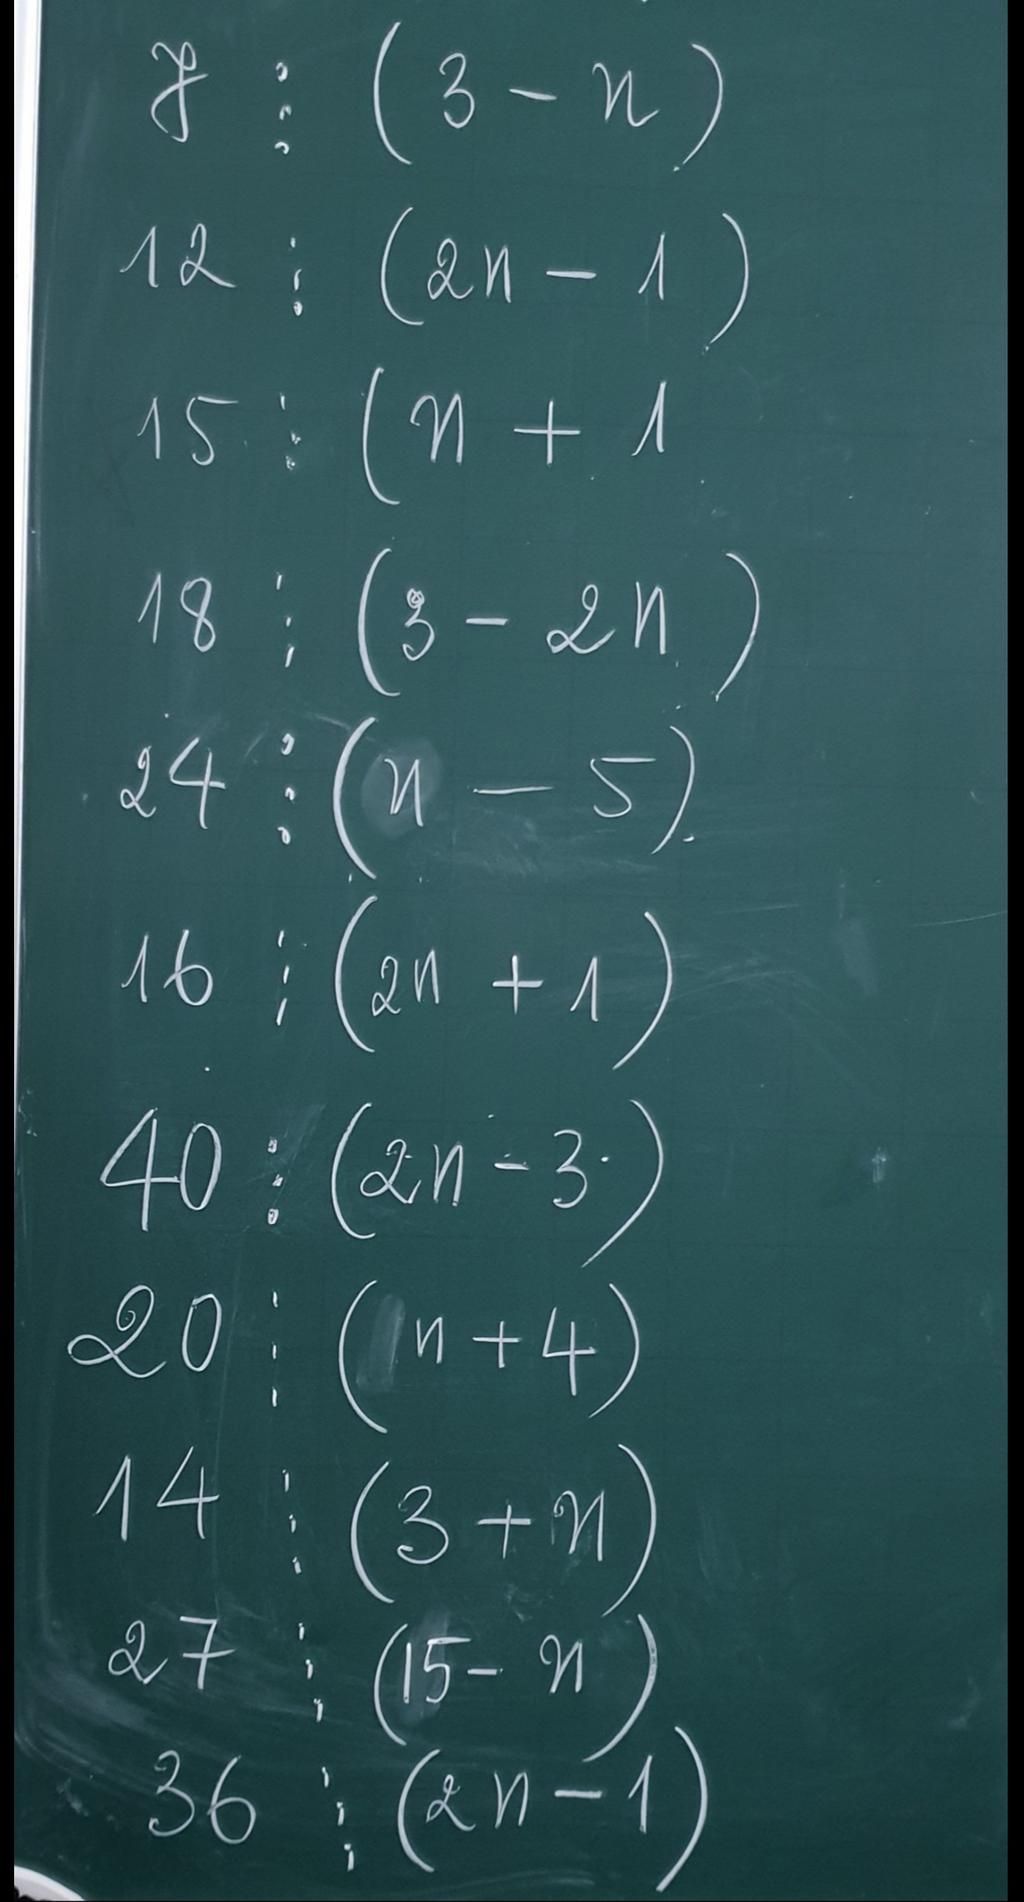 7 ⋮ (3 - n)
12 ⋮ (2n - 1)
15 ⋮ (n + 1
18 ⋮ (3 - 2n)
24 ⋮ (n - 5)
16 ⋮ (2n + 1)
40 ⋮ (2n - 3)
20 ⋮ (n + 4)
14 ⋮ (3 + n)
27 ⋮ (15 - n)
36 ⋮ (2n - 1)